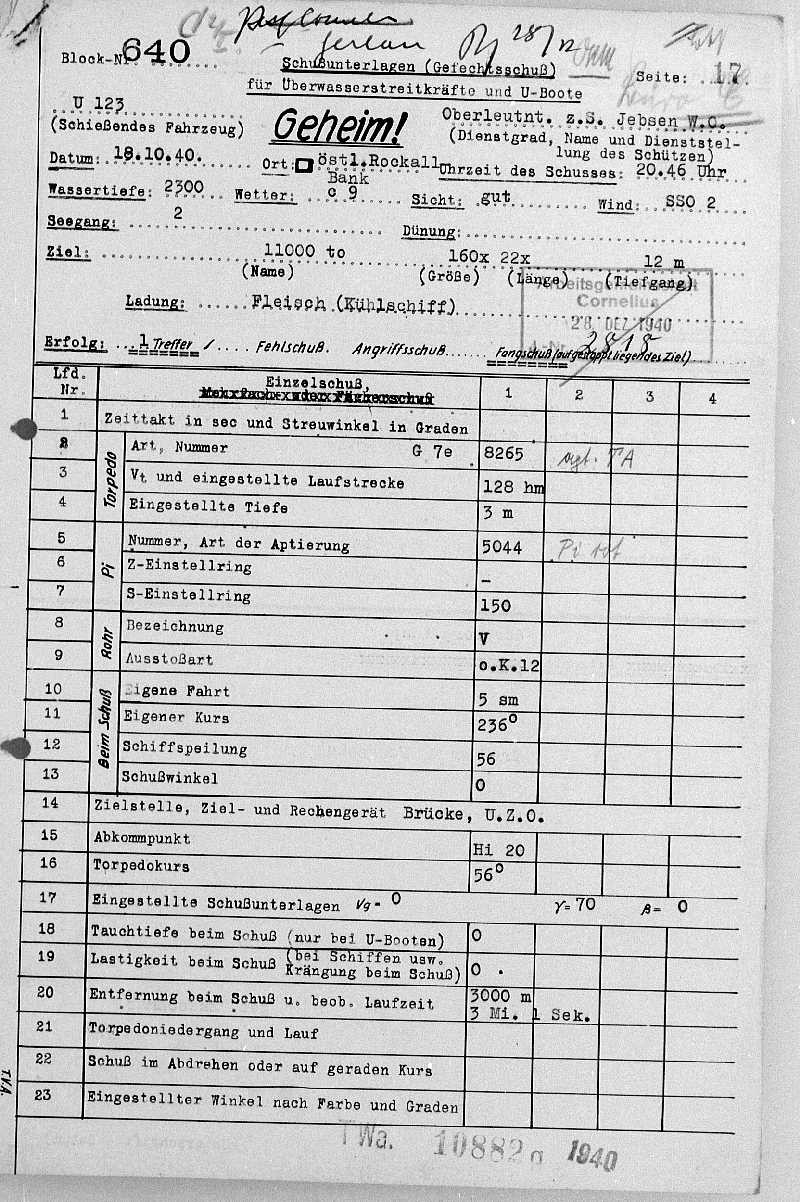 28/12
Block-Nr. 640
Schußunterlagen (Gefechtsschuß)
für Überwasserstreitkräfte und U-Boote
Seite: 17
U 123
(Schießendes Fahrzeug)
Geheim!
Oberleutnt. z.S. Jebsen W.O.
(Dienstgrad, Name und Dienststel-
lung des Schützen)
Datum: 18.10.40. Ort: östl.Rockall Uhrzeit des Schusses: 20.46 Uhr
Bank
Wassertiefe: 2300 Wetter: c 9 Sicht: gut Wind: SSO 2
Seegang: 2 Dünung:
Ziel: 11000 to 160x 22x 12 m
(Name) (Größe) (Länge) (Tiefgang)
Ladung: Fleisch (Kühlschiff)
Arbeitsgemeinschaft
Cornelius
28. DEZ. 1940
J.-Nr. 2818
Erfolg: 1 Treffer / Fehlschuß. Angriffsschuß Fangschuß (auf gestoppt liegendes Ziel)
Lfd. Nr. Einzelschuß, Mehrfach- oder Fächerschuß 1 2 3 4
1 Zeittakt in sec und Streuwinkel in Graden
Torpedo
2 Art, Nummer G 7e 8265 TA
3 Vt und eingestellte Laufstrecke 128 hm
4 Eingestellte Tiefe 3 m
Pi
5 Nummer, Art der Aptierung 5044 Pi
6 Z-Einstellring -
7 S-Einstellring 150
Rohr
8 Bezeichnung V
9 Ausstoßart o.K.12
Beim Schuß
10 Eigene Fahrt 5 sm
11 Eigener Kurs 236°
12 Schiffspeilung 56
13 Schußwinkel 0
14 Zielstelle, Ziel- und Rechengerät Brücke, U.Z.O.
15 Abkommpunkt Hi 20
16 Torpedokurs 56°
17 Eingestellte Schußunterlagen Vg= 0 γ= 70 β= 0
18 Tauchtiefe beim Schuß (nur bei U-Booten) 0
19 Lastigkeit beim Schuß (bei Schiffen usw. Krängung beim Schuß) 0 .
20 Entfernung beim Schuß u. beob. Laufzeit 3000 m
3 Mi. 1 Sek.
21 Torpedoniedergang und Lauf
22 Schuß im Abdrehen oder auf geraden Kurs
23 Eingestellter Winkel nach Farbe und Graden
T.V.A.
TWa. 10882g 1940